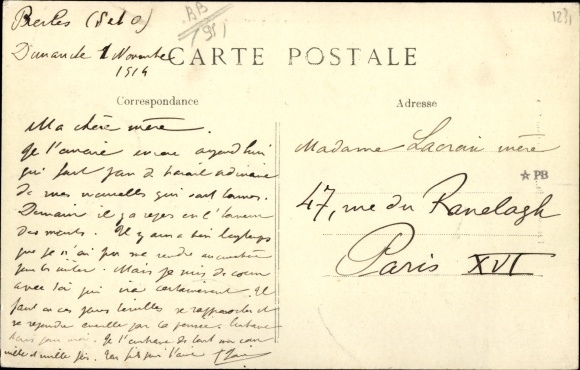 Presles (S et O)
Dimanche 1 Novembre
1914
AB
951
123
CARTE POSTALE
Correspondance
Adresse
Ma chère mère.
Je t'envoie encore aujourd'hui
qui fait jour de travail ordinaire
de mes nouvelles qui sont bonnes.
Demain il y a repos en l'honneur
des morts. Il y aura bien longtemps
que je n'ai pu me rendre au cimetière
Mais je suis de coeur
avec toi qui iras certainement. Il
faut en ces jours
se rejoindre par la pensée.
Je t'embrasse de tout mon coeur
mille et mille fois. Ton fils qui t'aime
Madame Lacroix mère
PB
47, rue du Ranelagh
Paris XVI